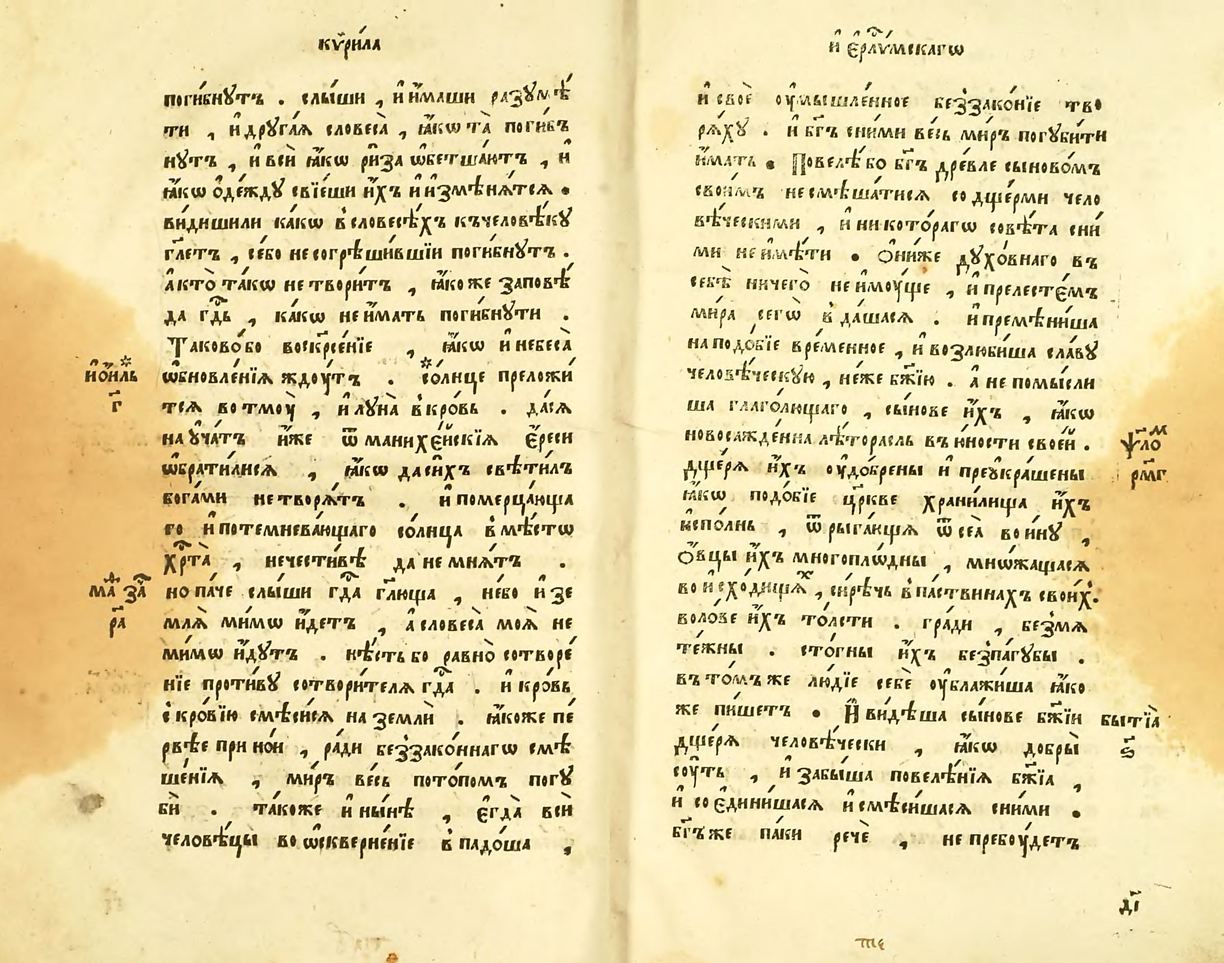 кѷри́ла
поги́бнꙋтъ . слы́ши , и҆и҆́маши разꙋмѣ́
ти , и҆дрꙋга́ѧ словеса̀ , ꙗ҆́кѡ та̀ поги́б
нꙋтъ , и҆всѝ ꙗ҆́кѡ ри́за ѡ҆бетша́ютъ , и҆
ꙗ҆́кѡ ѻ҆де́ждꙋ свїе́ши и҆̀хъ и҆и҆змѣнѧ́тсѧ .
ви́дишили ка́кѡ в̾словесѣ́хъ къчеловѣ́кꙋ
гл҃етъ , се́бо несогрѣши́вшїи поги́бнꙋтъ .
а҆кто̀ та́кѡ нетвори́тъ , ꙗ҆́коже заповѣ́
да гд҇ь , ка́кѡ неи҆́мать поги́бнꙋти .
Таково́бо воскр҇се́нїе , ꙗ҆́кѡ и҆небеса̀
и҆ѻи́ль
ѡ҆бновле́нїѧ ждꙋ́тъ . * со́лнце преложи́
г҃
тсѧ вотмꙋ̀ , и҆лꙋна̀ в̾кро́вь . да́сѧ
наꙋча́тъ и҆́же ѿ манихе́йскїѧ є҆́реси
ѡ҆брати́лисѧ , ꙗ҆́кѡ даси́хъ свѣти́лъ
бога́ми нетворѧ́тъ . и҆померца́юща
го и҆потемнева́ющаго со́лнца в̾мѣ́стѡ
хр҇та̀ , нечести́вѣ да не мнѧ́тъ .
маѳ за҄
но па́че слы́ши гд҇а гл҃юща , не́бо и҆зе
р҃а
млѧ̀ ми́мѡ и҆́детъ , а҆словеса̀ моѧ̀ не
ми́мѡ и҆́дꙋтъ . нѣ́стьбо равно̀ сотворе́
нїе проти́вꙋ сотвори́телѧ гд҇а . и҆кро́вь
с̾кро́вїю смѣси́сѧ на землѝ . ꙗ҆́коже пе́
рвѣе при но́и , ра́ди беззако́ннагѡ смѣ
ше́нїѧ , ми́ръ ве́сь пото́помъ погꙋ
бѝ . та́коже и҆ны́нѣ , є҆гда̀ всѝ
человѣ́цы во ѡ҆скверне́нїе в̾падо́ша ,
и҆ і҆ерⷭ҇лѵ́мскагѡ
и҆ своѐ ᲂу҆мы́шленное беззако́нїе тво
рѧ́хꙋ . и҆ бг҃ъ сни́ми ве́сь ми́ръ погꙋби́ти
и҆́мать . Повелѣ́ бо бг҃ъ дре́вле сыново́мъ
свои́мъ несмѣша́тисѧ со дще́рми чело
вѣ́ческими , и҆ никото́рагѡ совѣ́та сни́
ми неи҆мѣ́ти . Ѻ҆ни́же дꙋхо́внаго въ
себѣ̀ ничего̀ неи҆мꙋ́ще , и҆прелесте́мъ
ми́ра сегѡ̀ в̾да́шасѧ . и҆премѣни́ша
наподо́бїе вре́менное , и҆возлюби́ша сла́вꙋ
человѣ́ческꙋю , не́же бж҃їю . а҆ не помы́сли
ша глаго́лющаго , сы́нове и҆́хъ , ꙗ҆́кѡ
новосажде́нна лѣ́торасль въ ю҆́ности свое́й .
ѱло́м
дще́рѧ и҆́хъ ᲂу҆до́брены и҆ преꙋкра́шены
рм҃г
ꙗ҆́кѡ подо́бїе цр҃кве храни́лища и҆́хъ
и҆спо́лнь , ѿрыга́ющѧ ѿсеѧ̀ во и҆́нꙋ ,
Ѻ҆́вцы и҆́хъ многопло́дны , мно́жащасѧ
во и҆схо́дищѧх , си́рѣчь в̾па́ствинахъ свои́х .
воло́ве и҆́хъ то́лсти . гра́ди , безмѧ
те́жны . сто́гны и҆́хъ безпа́гꙋбы .
въ то́мъ же лю́дїе себѐ ᲂу҆блажи́ша ꙗ҆́ко
же пи́шетъ . И҆ ви́дѣша сы́нове бж҃їи
бытїа̀
дще́рѧ человѣ́чески , ꙗ҆́кѡ добры̀
ѕ҃
сꙋ́ть , и҆ забы́ша повелѣ́нїѧ бж҃їа ,
и҆ соедини́шасѧ и҆смѣси́шасѧ сни́ми .
бг҃ъже па́ки речѐ , не пребꙋ́детъ
д҃і